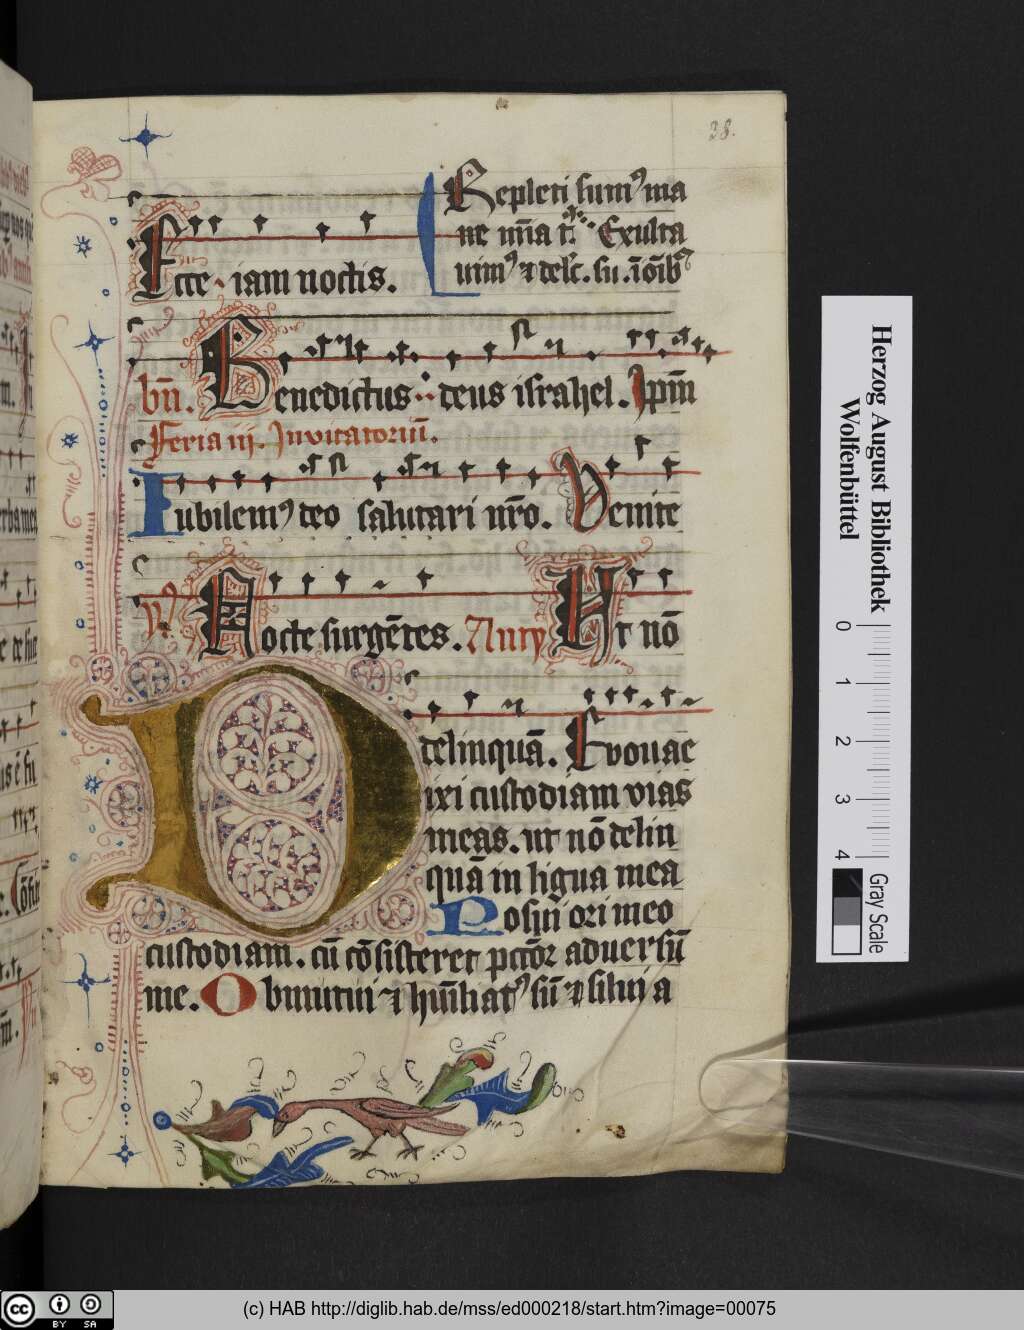 28.
Repleti sumꝰ ma
ne mīa t. Exulta
uimꝰ ⁊ delc̄. su. ī oīb
Ecce iam noctis.
bn̄. Benedictus deus israhel. Ipm̄
Feria iij. Inuitatoriū.
Iubilemꝰ deo salutari nr̄o. Venite
Nocte surgētes. Ut nō
delinquā. Euouae
Dixi custodiam vias
meas. ut nō delin
quā in ligua mea
Posui ori meo
custodiam. cū cōsisteret pctōr aduersū
me. Obmutui ⁊ humiliatꝰ sū ⁊ silui a
Herzog August Bibliothek
Wolfenbüttel
0 1 2 3 4
Gray Scale
cc BY SA
(c) HAB http://diglib.hab.de/mss/ed000218/start.htm?image=00075